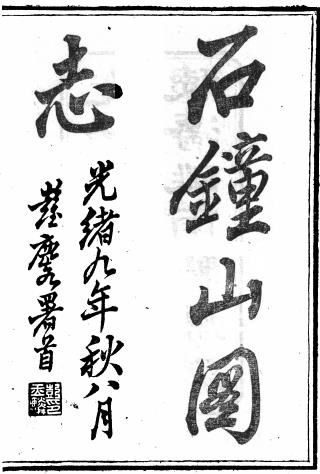 石鐘山圖
志
光緒九年秋八月
彭玉麐署首